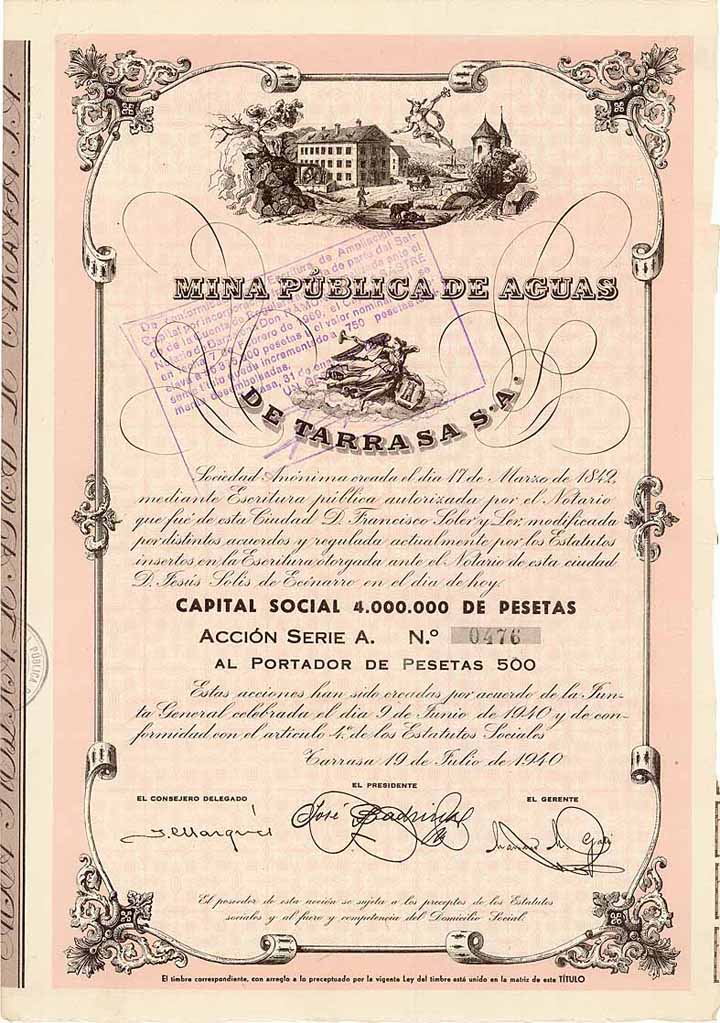 MINA PÚBLICA DE AGUAS
DE TARRASA S.A.
Escritura de Ampliación
Capital por incorporación de parte del Sal-
Notario de Barcelona Don RAMÓN SASTRE
7 de Febrero de 1969, el
pesetas el valor nominal
queda incrementado a 750 pesetas
desembolsadas.
31 de
Sociedad Anónima creada el dia 17 de Marzo de 1842,
mediante Escritura pública autorizada por el Notario
que fué de esta Ciudad D. Francisco Soler y Ler, modificada
por distintos acuerdos y regulada actualmente por los Estatutos
insertos en la Escritura otorgada ante el Notario de esta ciudad
D. Jesús Solis de Ecénarro en el dia de hoy.
CAPITAL SOCIAL 4.000.000 DE PESETAS
ACCIÓN SERIE A. N.º 0476
AL PORTADOR DE PESETAS 500
Estas acciones han sido creadas por acuerdo de la Jun-
ta General celebrada el dia 9 de Junio de 1940 y de con-
formidad con el artículo 4.º de los Estatutos Sociales
Tarrasa 19 de Julio de 1940
EL CONSEJERO DELEGADO
EL PRESIDENTE
EL GERENTE
J. Marquet
José Badrinas
El poseedor de esta acción se sujeta a los preceptos de los Estatutos
sociales y al fuero y competencia del Domicilio Social.
El timbre correspondiente, con arreglo a lo preceptuado por la vigente Ley del timbre está unido en la matriz de este TÍTULO
PÚBLICA D